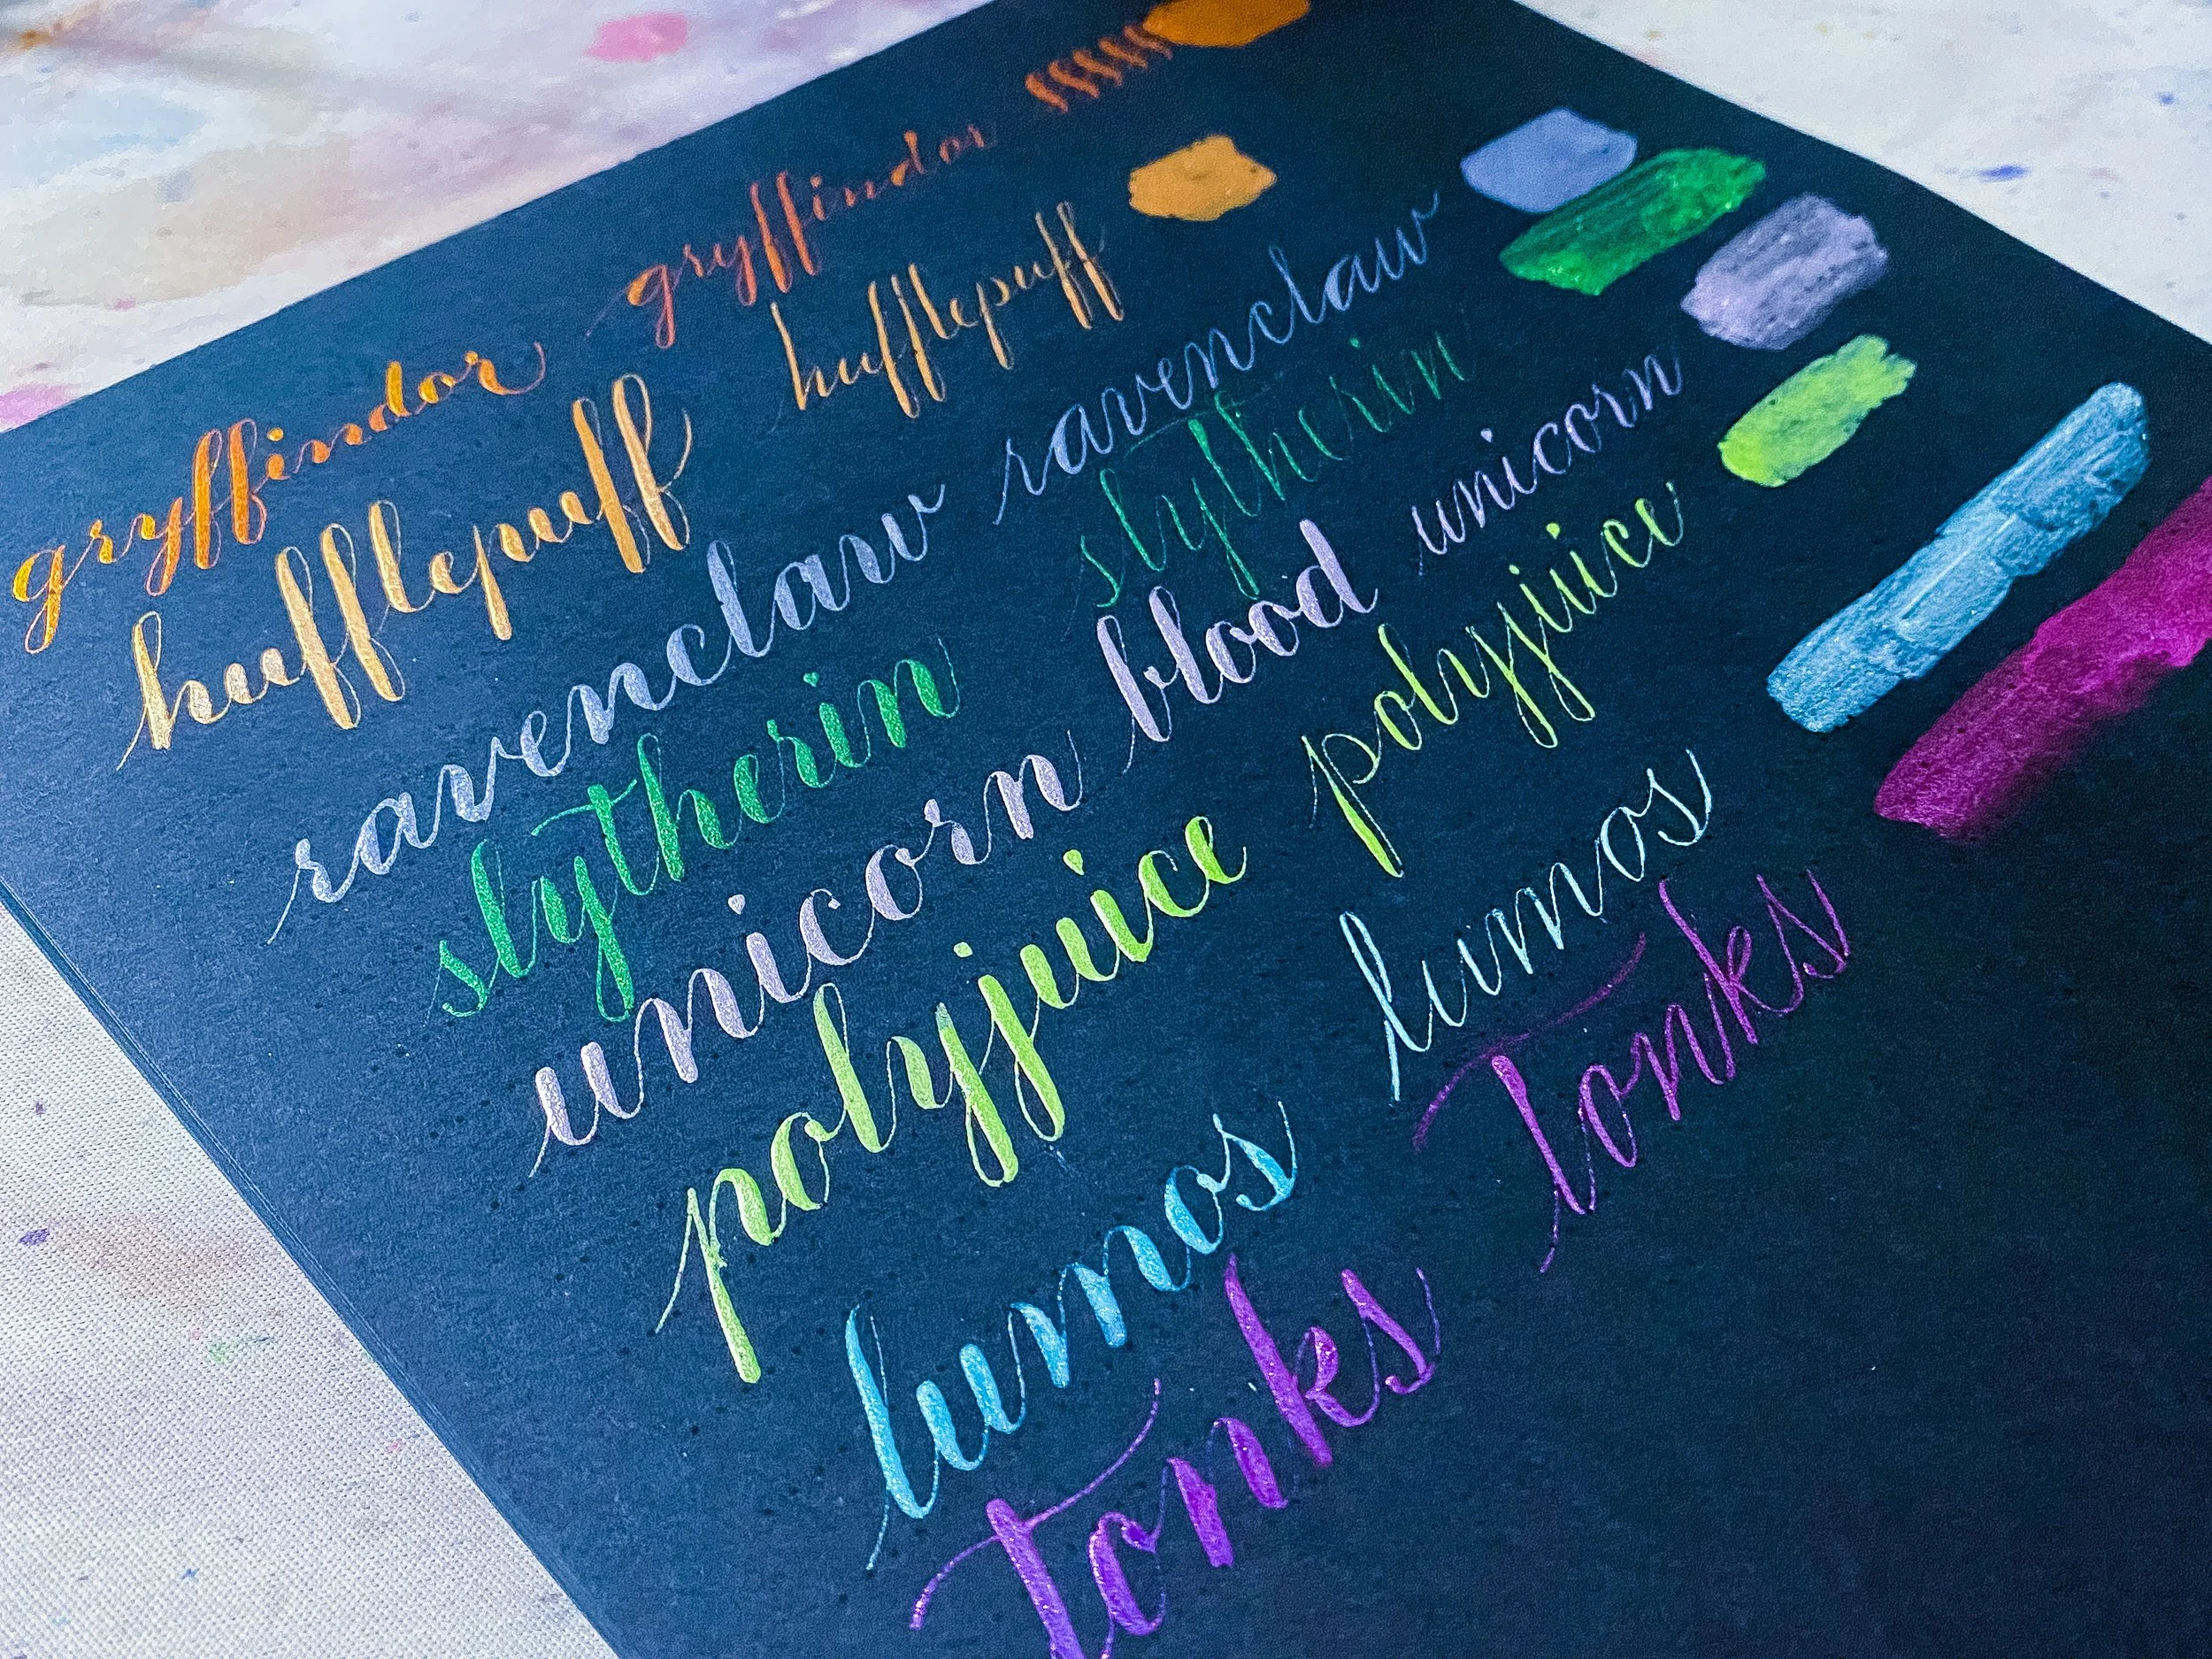 gryffindor gryffindor
hufflepuff hufflepuff
ravenclaw ravenclaw
slytherin slytherin
unicorn blood unicorn
polyjuice polyjuice
lumos lumos
Tonks Tonks